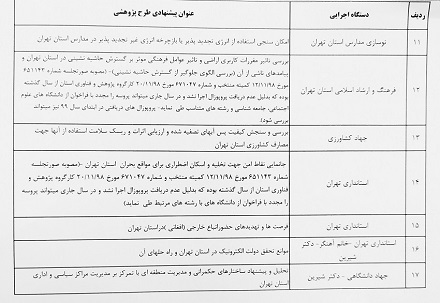 ردیف
دستگاه اجرایی
عنوان پیشنهادی طرح پژوهشی
۱۱
نوسازی مدارس استان تهران
امکان سنجی استفاده از انرژی تجدید پذیر با بازچرخه انرژی غیر تجدید پذیر در مدارس استان تهران
۱۲
فرهنگ و ارشاد اسلامی استان تهران
بررسی تاثیر مقررات کاربری اراضی و تاثیر عوامل فرهنگی موثر بر گسترش حاشیه نشینی در استان تهران و
پیامدهای ناشی از آن (بررسی الگوی جلوگیر از گسترش حاشیه نشینی)-(مصوبه صورتجلسه شماره ۶۵۱۱۴۳
مورخ ۱۲/۱۱/۹۸ کمیته منتخب و شماره ۶۷۱۰۴۷ مورخ ۲۰/۱۱/۹۸ کارگروه پژوهش و فناوری استان از سال گذشته
که بدلیل عدم دریافت پروپوزال اجرا نشد و در سال جاری میتواند پروسه را مجدد با فراخوان از دانشگاه های علوم
اجتماعی، جامعه شناسی و رشته های متناسب طی نماید- پروپوزال های دریافتی در ابتدای سال ۹۹ نیز میتواند
بررسی شود)
۱۳
جهاد کشاورزی
بررسی و سنجش کیفیت پس آبهای تصفیه شده و ارزیابی اثرات و ریسک سلامت استفاده از آنها جهت
مصارف کشاورزی استان تهران
۱۴
استانداری تهران
جانمایی نقاط امن جهت تخلیه و اسکان اضطراری برای مواقع بحران استان تهران -(مصوبه صورتجلسه
شماره ۶۵۱۱۴۳ مورخ ۱۲/۱۱/۹۸ کمیته منتخب و شماره ۶۷۱۰۴۷ مورخ ۲۰/۱۱/۹۸ کارگروه پژوهش و
فناوری استان از سال گذشته بوده که بدلیل عدم دریافت پروپوزال اجرا نشد و در سال جاری میتواند پروسه
را مجدد با فراخوان از دانشگاه های با رشته های مرتبط طی نماید)
۱۵
استانداری تهران
فرصت ها و تهدیدهای حضوراتباع خارجی (افغانی) دراستان تهران
۱۶
استانداری تهران -خانم آهنگر- دکتر
شیرین
موانع تحقق دولت الکترونیک در استان تهران و راه حلهای آن
۱۷
جهاد دانشگاهی - دکتر شیرین
تحلیل و پیشنهاد ساختارهای حکمرانی و مدیریت منطقه ای با تمرکز بر مدیریت مراکز سیاسی و اداری
استان تهران